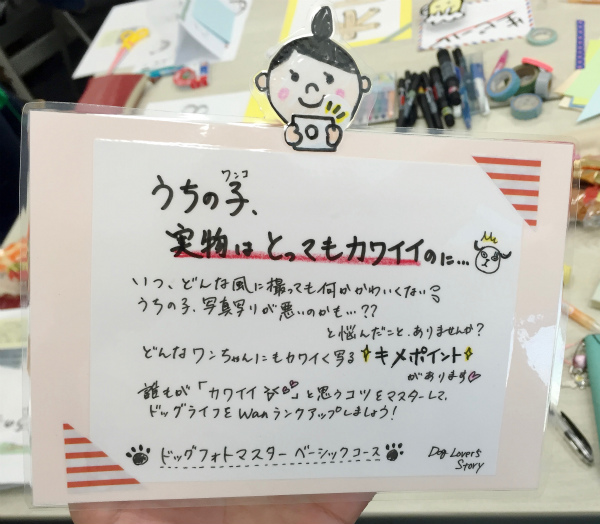 うちの子、
ワンコ
実物はとってもカワイイのに…
いつ、どんな風に撮っても何かかわいくない
うちの子、写真写りが悪いのかも…??
と悩んだこと、ありませんか?
どんなワンちゃんにもカワイく写る キメポイント
があります
誰もが「カワイイ」と思うコツをマスターして、
ドッグライフをWanランクアップしましょう!
ドッグフォトマスター ベーシックコース
Dog Lovers
Story